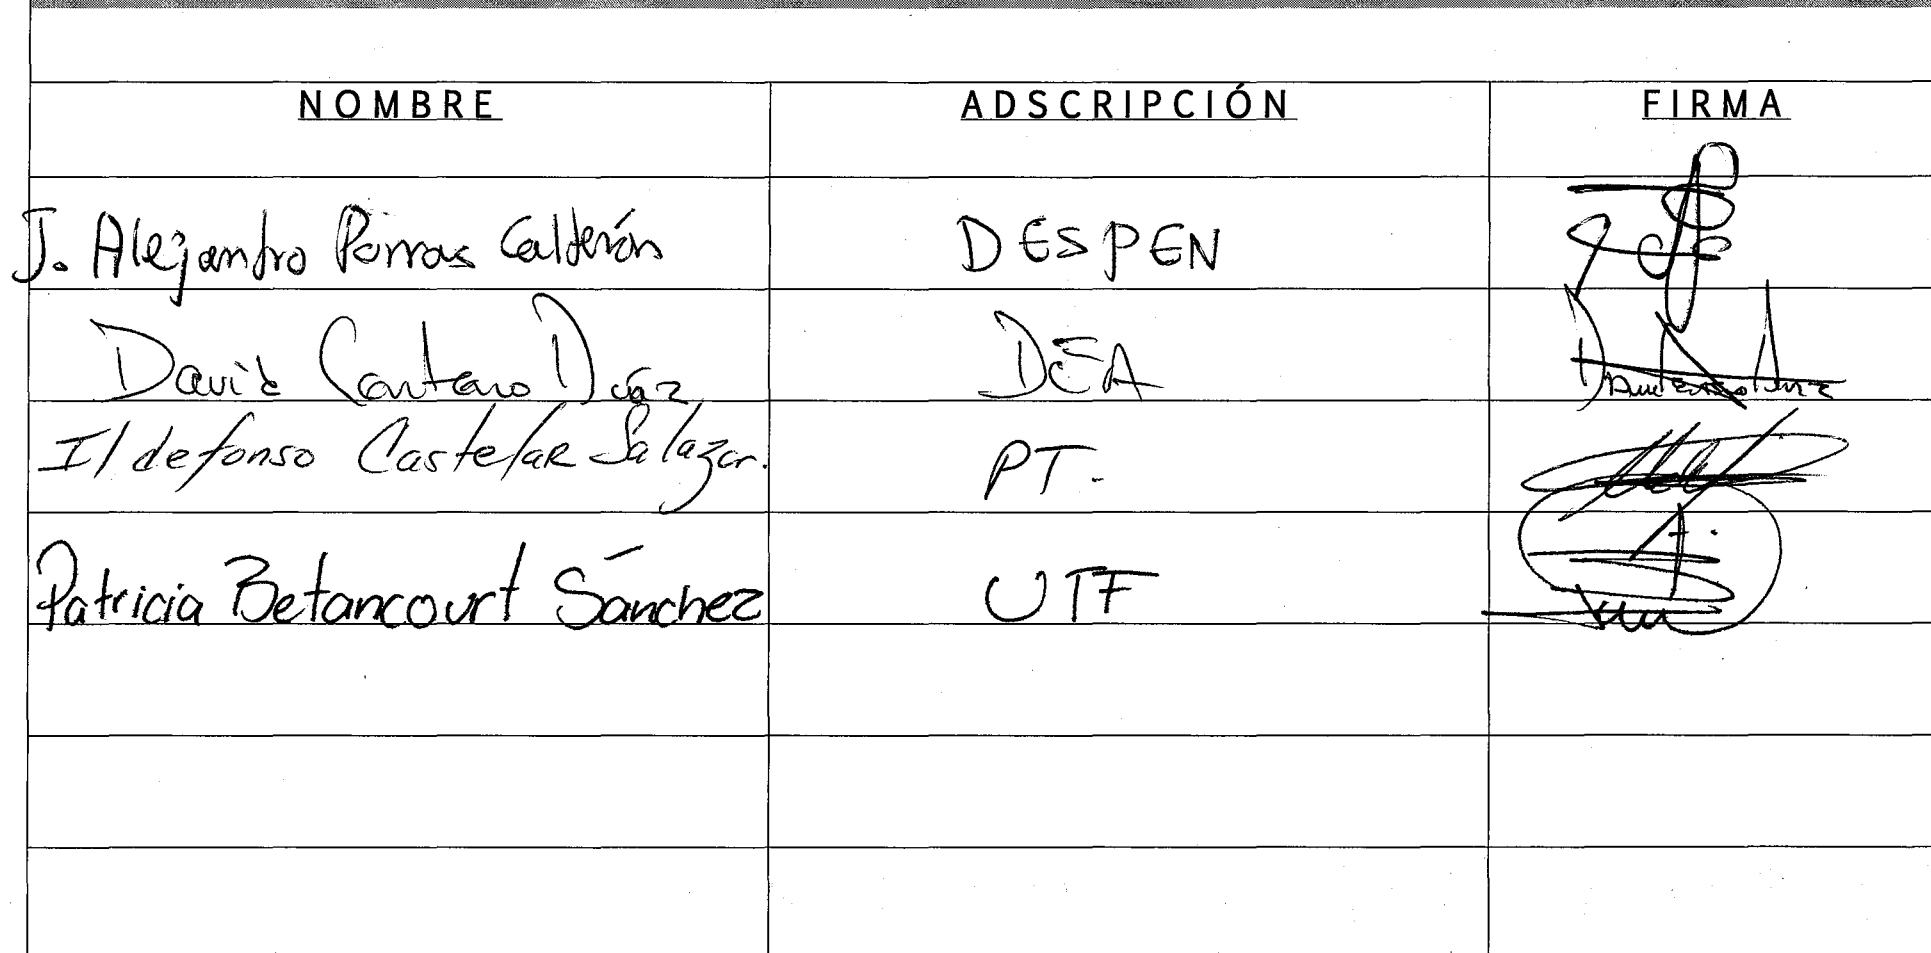 NOMBRE ADSCRIPCIÓN FIRMA
J. Alejandro Porras Calderón DESPEN
David Cantero Díaz DEA
Ildefonso Castelar Salazar. PT.
Patricia Betancourt Sánchez UTF